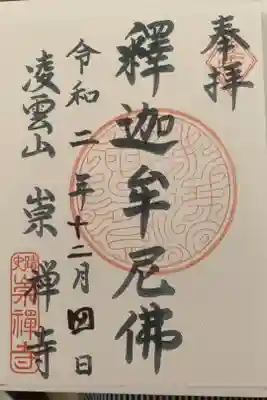 奉拝
釋迦牟尼佛
令和二年十二月四日
凌雲山 崇禅寺
崇禪寺